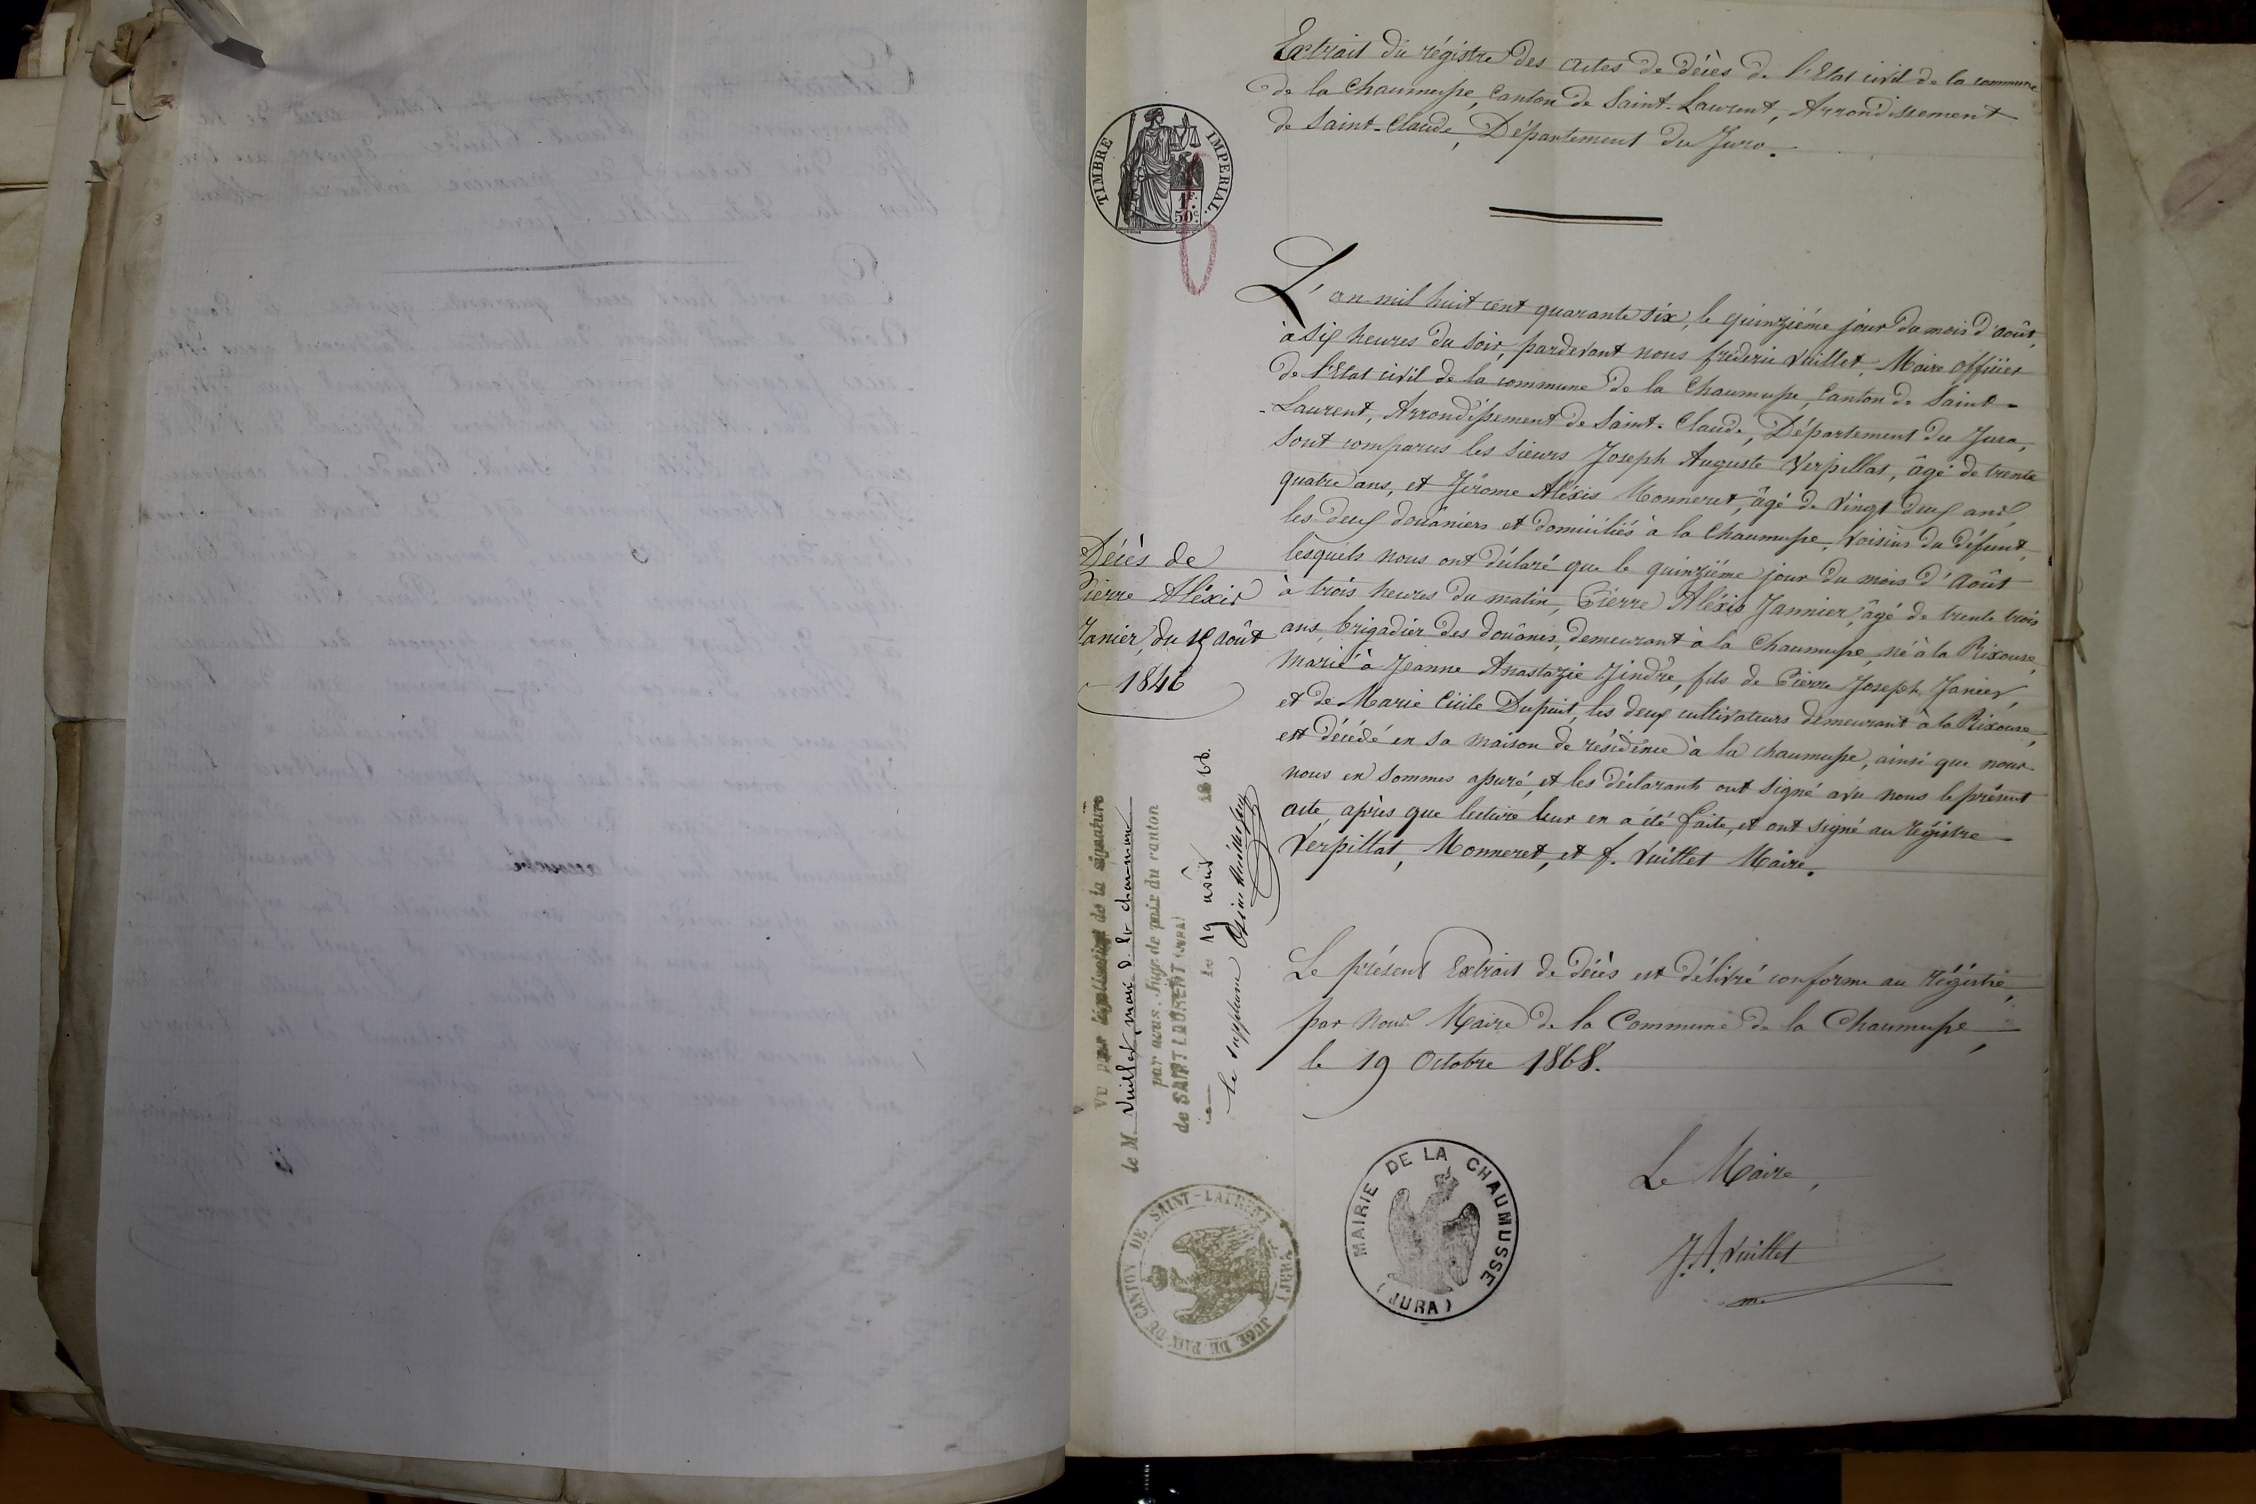 Extrait du régistre des actes de décès de l'Etat civil de la commune
de la Chaumusse, Canton de Saint-Laurent, Arrondissement
de Saint-Claude, Département du Jura.
TIMBRE IMPERIAL.
1F. 50c
L'an mil huit cent quarante six, le quinzième jour du mois d'août,
à six heures du soir, pardevant nous frédéric Vuillet Maire officier
de l'Etat civil de la commune de la Chaumusse, Canton de Saint-
-Laurent, Arrondissement de Saint-Claude, Département du Jura,
sont comparus les sieurs Joseph Auguste Verpillat, âgé de trente
quatre ans, et Jérôme Aléxis Monneret, âgé de vingt deux ans,
les deux douâniers et domiciliés à la Chaumusse, voisins du défunt,
lesquels nous ont déclaré que le quinzième jour du mois d'Août
à trois heures du matin, Pierre Aléxis Jannier, âgé de trente trois
ans, brigadier des douânes, demeurant à la Chaumusse, né à la Rixouse,
marié à Jeanne Anastazie Jindre, fils de Pierre Joseph Janier,
et de Marie Cécile Dupuit, les deux cultivateurs demeurant à la Rixouse,
est décédé en sa maison de résidence à la chaumusse, ainsi que nous
nous en sommes assuré, et les déclarants ont signé avec nous le présent
acte, après que lecture leur en a été faite, et ont signé au régistre
Verpillat, Monneret, et f. Vuillet Maire.
Décès de
Pierre Aléxis
Janier, du 15 août
1846
Le présent Extrait de décès est délivré conforme au régistre,
par nous Maire de la Commune de la Chaumusse,
le 19 Octobre 1868.
Le Maire,
J. A. Vuillet
Vu pour légalisation de la signature
de M. Vuillet, maire d. la chaumusse
par nous, Juge de paix du canton
de SAINT LAURENT (JURA)
le 19
1868.
Le suppléant
MAIRIE DE LA CHAUMUSSE
(JURA)
JUGE DE PAIX DU CANTON DE SAINT-LAURENT (JURA)